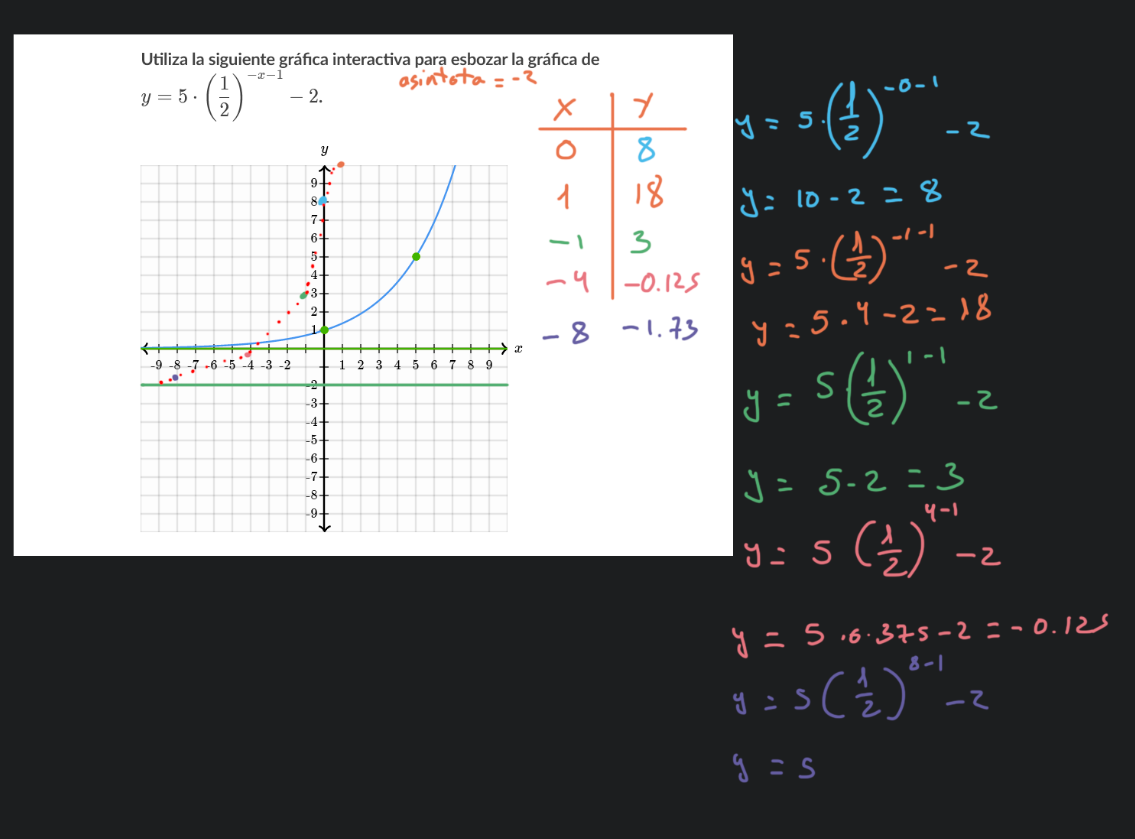 Utiliza la siguiente gráfica interactiva para esbozar la gráfica de
y = 5 · (1/2)^{-x-1} - 2.
asintota = -2
x | y
0 | 8
1 | 18
-1 | 3
-4 | -0.125
-8 | -1.73
y
9
8
7
6
5
4
3
2
1
-9 -8 -7 -6 -5 -4 -3 -2 1 2 3 4 5 6 7 8 9 x
-2
-3
-4
-5
-6
-7
-8
-9
y = 5 · (1/2)^{-0-1} - 2
y = 10 - 2 = 8
y = 5 · (1/2)^{-1-1} - 2
y = 5 · 4 - 2 = 18
y = 5 (1/2)^{1-1} - 2
y = 5 - 2 = 3
y = 5 (1/2)^{4-1} - 2
y = 5 · 0.375 - 2 = -0.125
y = 5 (1/2)^{8-1} - 2
y = 5